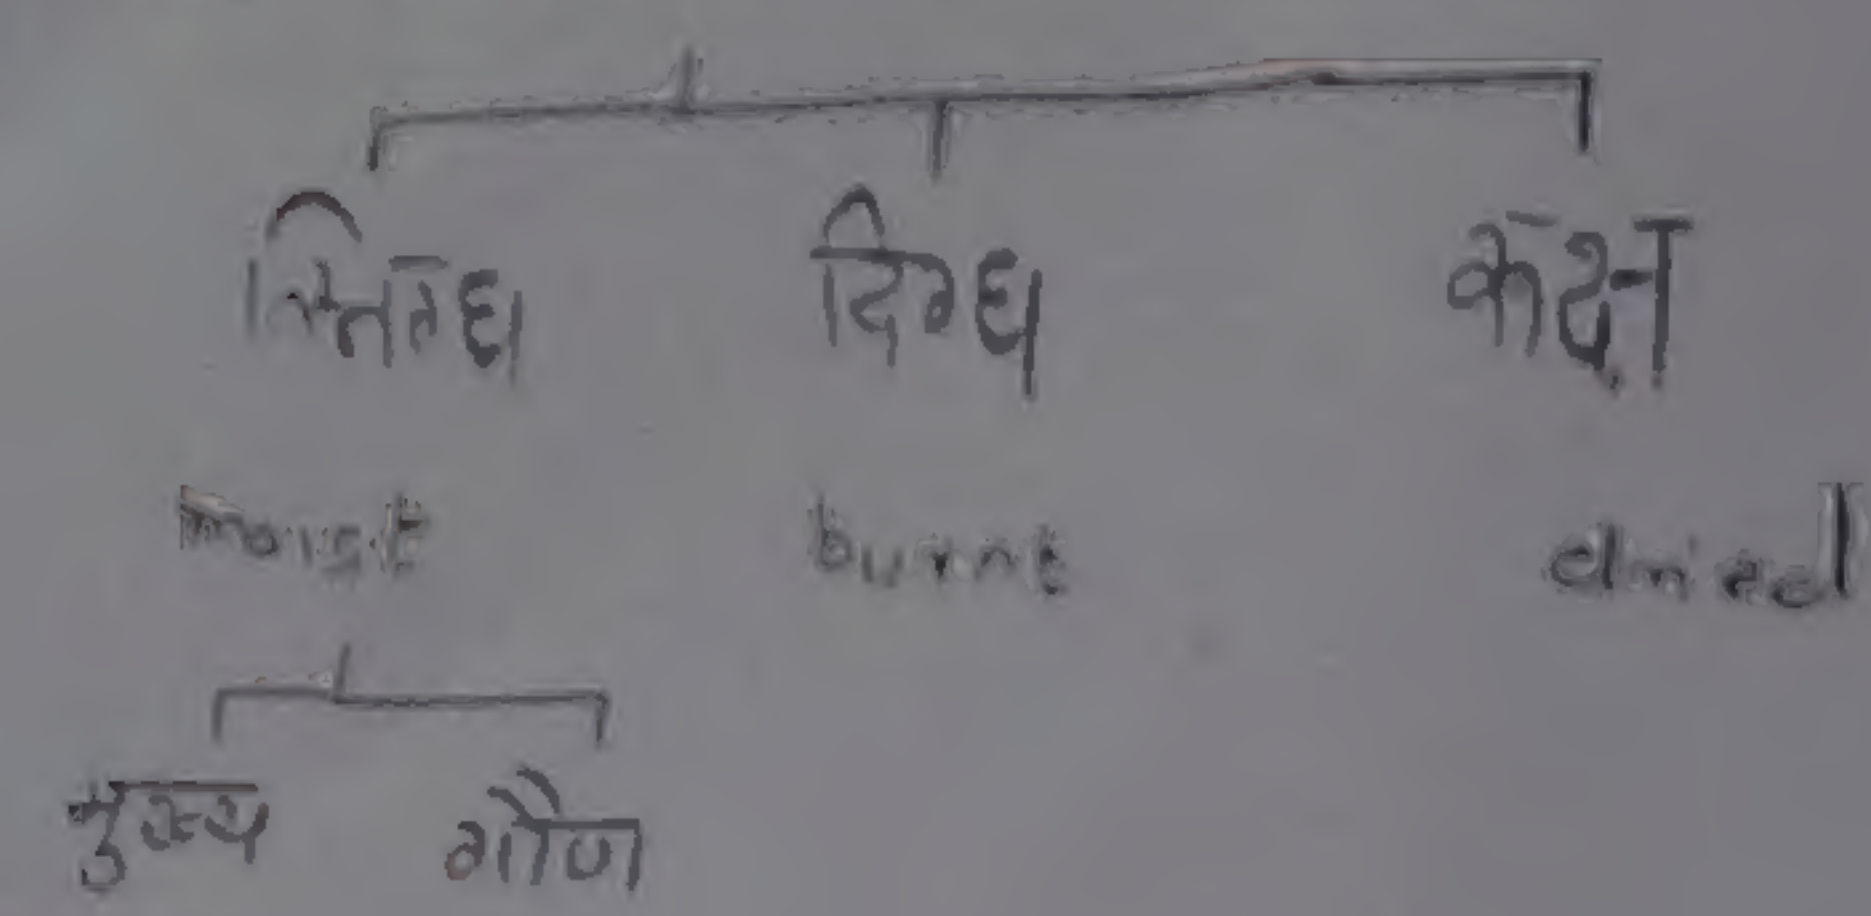 स्निग्ध दिग्ध
moist burnt dried
मुख्य गौण